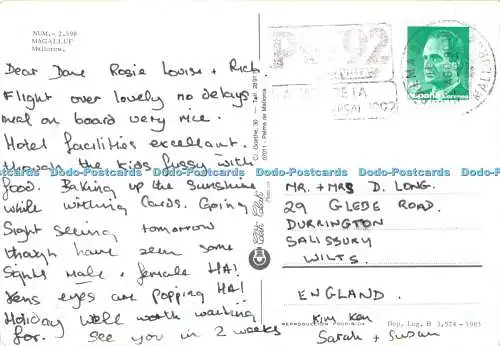 NUM.- 2.598
MAGALLUF
Mallorca.
Dear Dave Rosie Louise + Rich
Flight over lovely no delays
meal on board very nice.
Hotel facilities excellent.
through the kids fussy with
food. Baking up the sunshine
while writing Cards. Going
Sight seeing tomorrow
though have seen some
Sights male + female HA!
Kens eyes are popping HA!
Holiday well worth waiting
for. See you in 2 weeks
07011 - Palma de Mallorca
92
DE LA
1992
España Correos
MR. + MRS D. LONG.
29 GLEBE ROAD.
DURRINGTON
SALISBURY
WILTS.
ENGLAND.
Kim Ken
Sarah + Susan
REPRODUCCION PROHIBIDA
Dep. Leg. B 3.574 - 1983
Dodo-Postcards Dodo-Postcards Dodo-Postcards Dodo-Postcards Dodo-Postcards